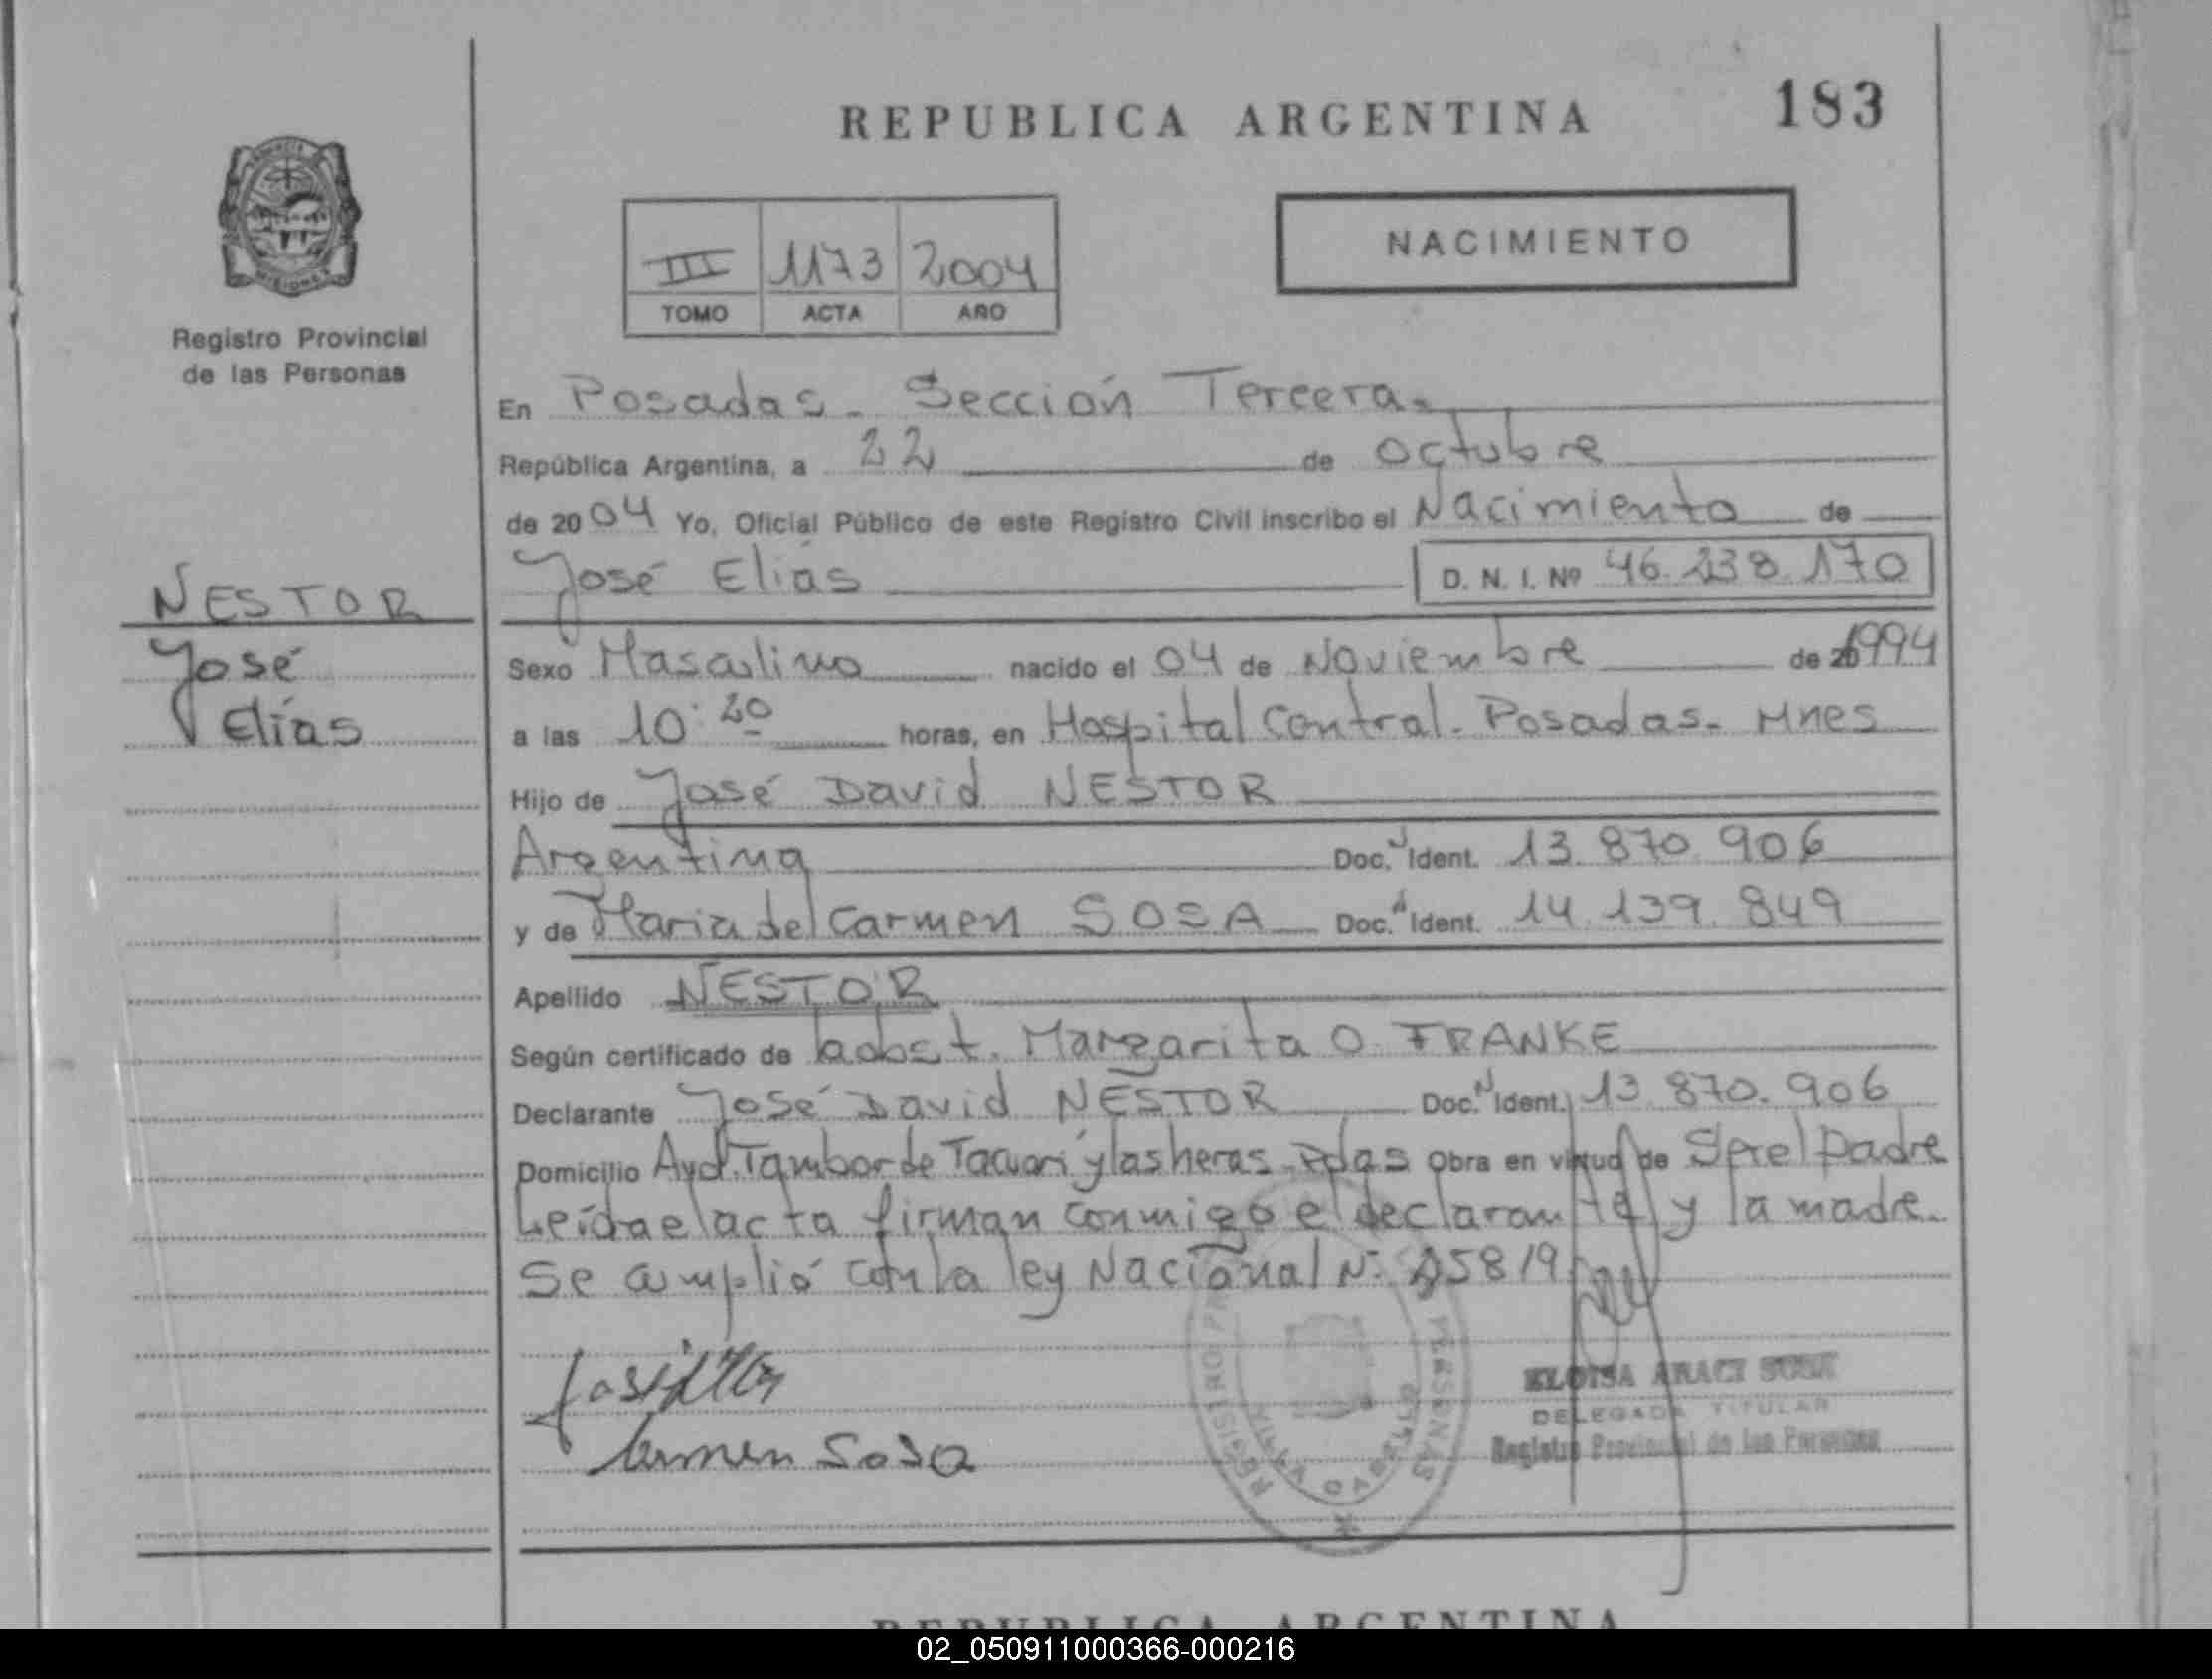 REPUBLICA ARGENTINA
183
III 1173 2004
TOMO ACTA AÑO
NACIMIENTO
PROVINCIA
MISIONES
Registro Provincial
de las Personas
NESTOR
José
Elías
En Posadas - Sección Tercera.
República Argentina, a 22 de octubre
de 2004 Yo, Oficial Público de este Registro Civil inscribo el Nacimiento de
José Elías D. N. I. Nº 46.238.170
Sexo Masculino nacido el 04 de Noviembre de 1994
a las 10:20 horas, en Hospital Central. Posadas. Mnes
Hijo de José David NESTOR
Argentina Doc. Ident. 13.870.906
y de Maria del Carmen SOSA Doc. Ident. 14.139.849
Apellido NESTOR
Según certificado de la obst. Margarita O. FRANKE
Declarante José David NESTOR Doc. Ident. 13.870.906
Domicilio Avd. Tambor de Tacuari y las heras - Pdas Obra en virtud de Ser el padre
Leída el acta firman conmigo el declarante y la madre.
Se cumplió con la ley Nacional Nº 25819
Carmen Sosa
REGISTRO PERSONAS
VILLA CABELLO
ELOISA ARACI SOSA
DELEGADA TITULAR
Registro Provincial de las Personas
REPUBLICA ARGENTINA
02_050911000366-000216